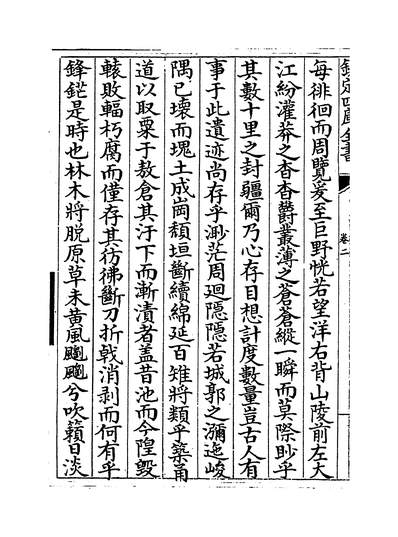 欽定四庫全書
卷二
每徘徊而周覽爰至巨野恍若望洋右背山陵前左大
江紛灌莽之杳杳欝叢薄之蒼蒼縱一瞬而莫際眇乎
其數十里之封疆爾乃心存目想計度數量豈古人有
事于此遺迹尚存乎渺茫周廻隱隱若城郭之瀰迤峻
隅已壞而塊土成岡頽垣斷續綿延百雉將類乎築甬
道以取粟于敖倉其汙下而漸漬者盖昔池而今隍毁
轅敗輻朽腐而僅存其彷彿斷刀折戟消剥而何有乎
鋒鋩是時也林木將脱原草未黄風飂飂兮吹籟日淡